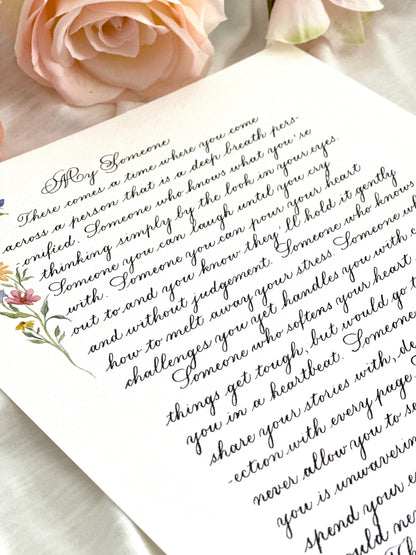 My Someone
There comes a time where you come
across a person that is a deep breath pers-
onified. Someone who knows what you're
thinking simply by the look in your eyes.
Someone you can laugh until you cry
with. Someone you can pour your heart
out to and you know they'll hold it gently
and without judgement. Someone who knows
how to melt away your stress. Someone who
challenges you yet handles you with c
Someone who softens your heart
things get tough, but would go t
you in a heartbeat. Someone
share your stories with, de
-ection with every page.
never allow you to se
you is unwavering
spend your e
ould ne